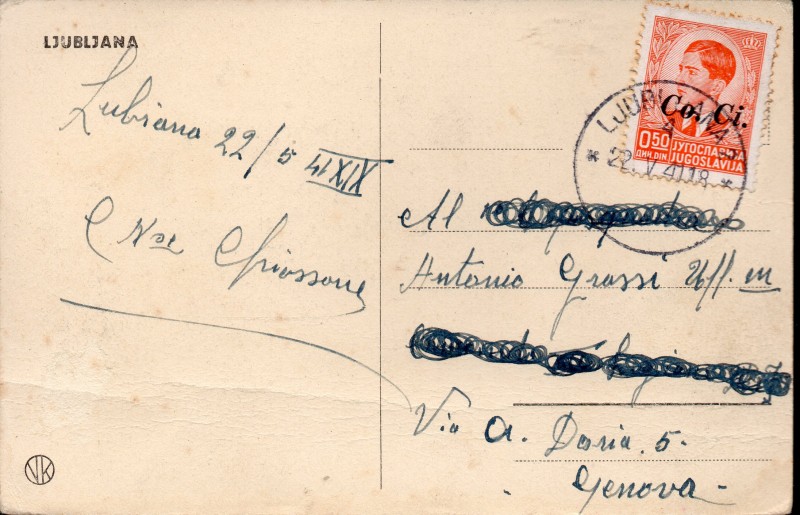 LJUBLJANA
Lubiana 22/5 41 XIX
Co. Ci.
0.50 ЈУГОСЛАВИЈА
ДИН. DIN JUGOSLAVIJA
LJUBLJANA
* 22. V 41 18 *
Al
Antonio Grassi Uff. m
Via A. Doria 5.
Genova -
VK